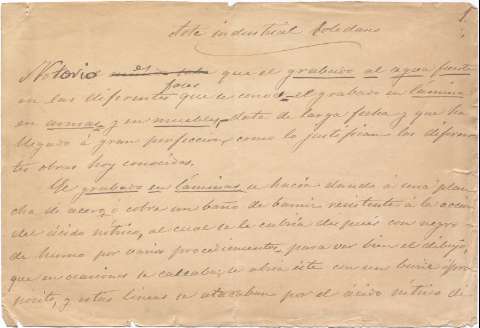 1
Arte industrial Toledano
Notorio es que el grabado al agua fuerte
fases
en las diferentes que se conoce, el grabado en lámina
en armas y en muebles, data de larga fecha y que ha
llegado á gran perfeccion como lo justifican las diferen
tes obras hoy conocidas.
El grabado en láminas se hacía dando á una plan
cha de acero ó cobre un baño de barniz resistente á la acción
del ácido nítrico, al cual se le cubria después con negro
de humo por varios procedimientos, para ver bien el dibujo,
que en ocasiones se calcaba; se abria éste con un buril á pro
posito, y estas líneas se atacaban por el ácido nítrico di